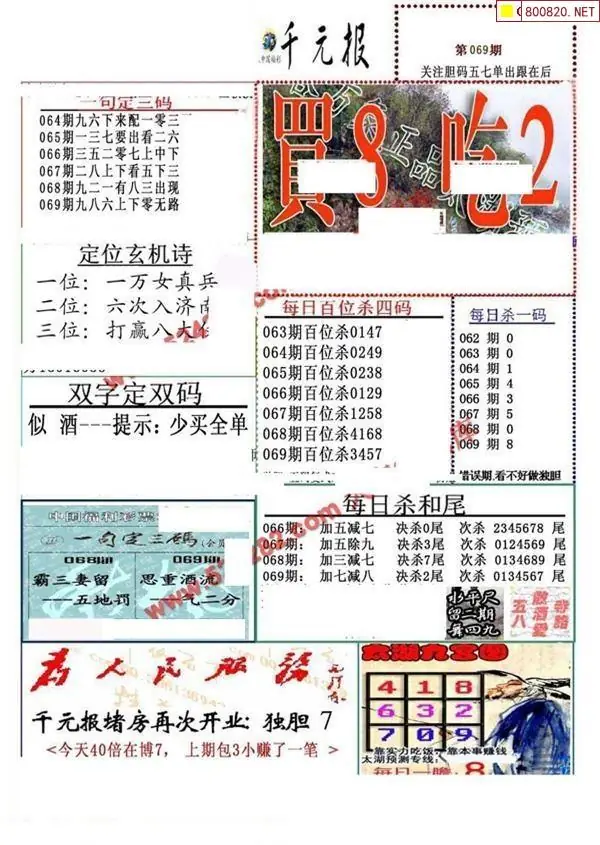 800820.NET
千元报
第069期
关注胆码五七单出跟在后
一句定三码
064期九六下来配一零三
065期一三七要出看二六
066期三五二零七上中下
067期二八上下看五下三
068期九二一有八三出现
069期九八六上下零无路
買8 吃2
定位玄机诗
一位：一万女真兵
二位：六次入济南
三位：打赢八大
每日百位杀四码
063期百位杀0147
064期百位杀0249
065期百位杀0238
066期百位杀0129
067期百位杀1258
068期百位杀4168
069期百位杀3457
每日杀一码
062 期 0
063 期 0
064 期 1
065 期 4
066 期 3
067 期 5
068 期 0
069 期 8
错误期,看不好做独胆
双字定双码
似 酒---提示：少买全单
每日杀和尾
066期： 加五减七 决杀0尾 次杀 2345678 尾
067期： 加五除九 决杀3尾 次杀 0124569 尾
068期： 加三减七 决杀7尾 次杀 0134689 尾
069期： 加七减八 决杀2尾 次杀 0134567 尾
中国福利彩票
一句定三码
068期 069期
霸三妻留 思重酒流
——五地罚 ——气二分
北平尺
留二期
舞四九
为人民服务
千元报堵房再次开业：独胆 7
<今天40倍在博7， 上期包3小赚了一笔 >
太湖九宫图
4 1 8
6 3 2
7 0 9
靠实力吃饭，靠本事赚钱
太湖预测专线：
每日一胆 8